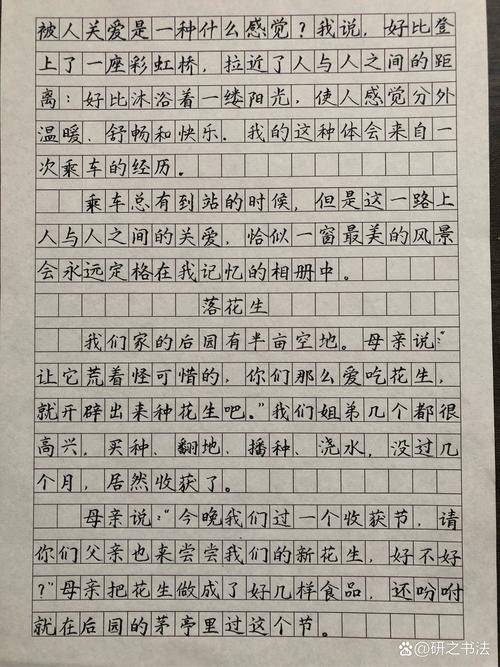 被人关爱是一种什么感觉？我说，好比登
上了一座彩虹桥，拉近了人与人之间的距
离：好比沐浴着一缕阳光，使人感觉分外
温暖、舒畅和快乐．我的这种体会来自一
次乘车的经历。
乘车总有到站的时候，但是这一路上
人与人之间的关爱，恰似一窗最美的风景
会永远定格在我记忆的相册中。
落花生
我们家的后园有半亩空地。母亲说：“
让它荒着怪可惜的，你们那么爱吃花生，
就开辟出来种花生吧。”我们姐弟几个都很
高兴，买种、翻地、播种、浇水，没过几
个月，居然收获了。
母亲说：“今晚我们过一个收获节，请
你们父亲也来尝尝我们的新花生，好不好
？”母亲把花生做成了好几样食品，还吩咐
就在后园的茅亭里过这个节。
研之书法